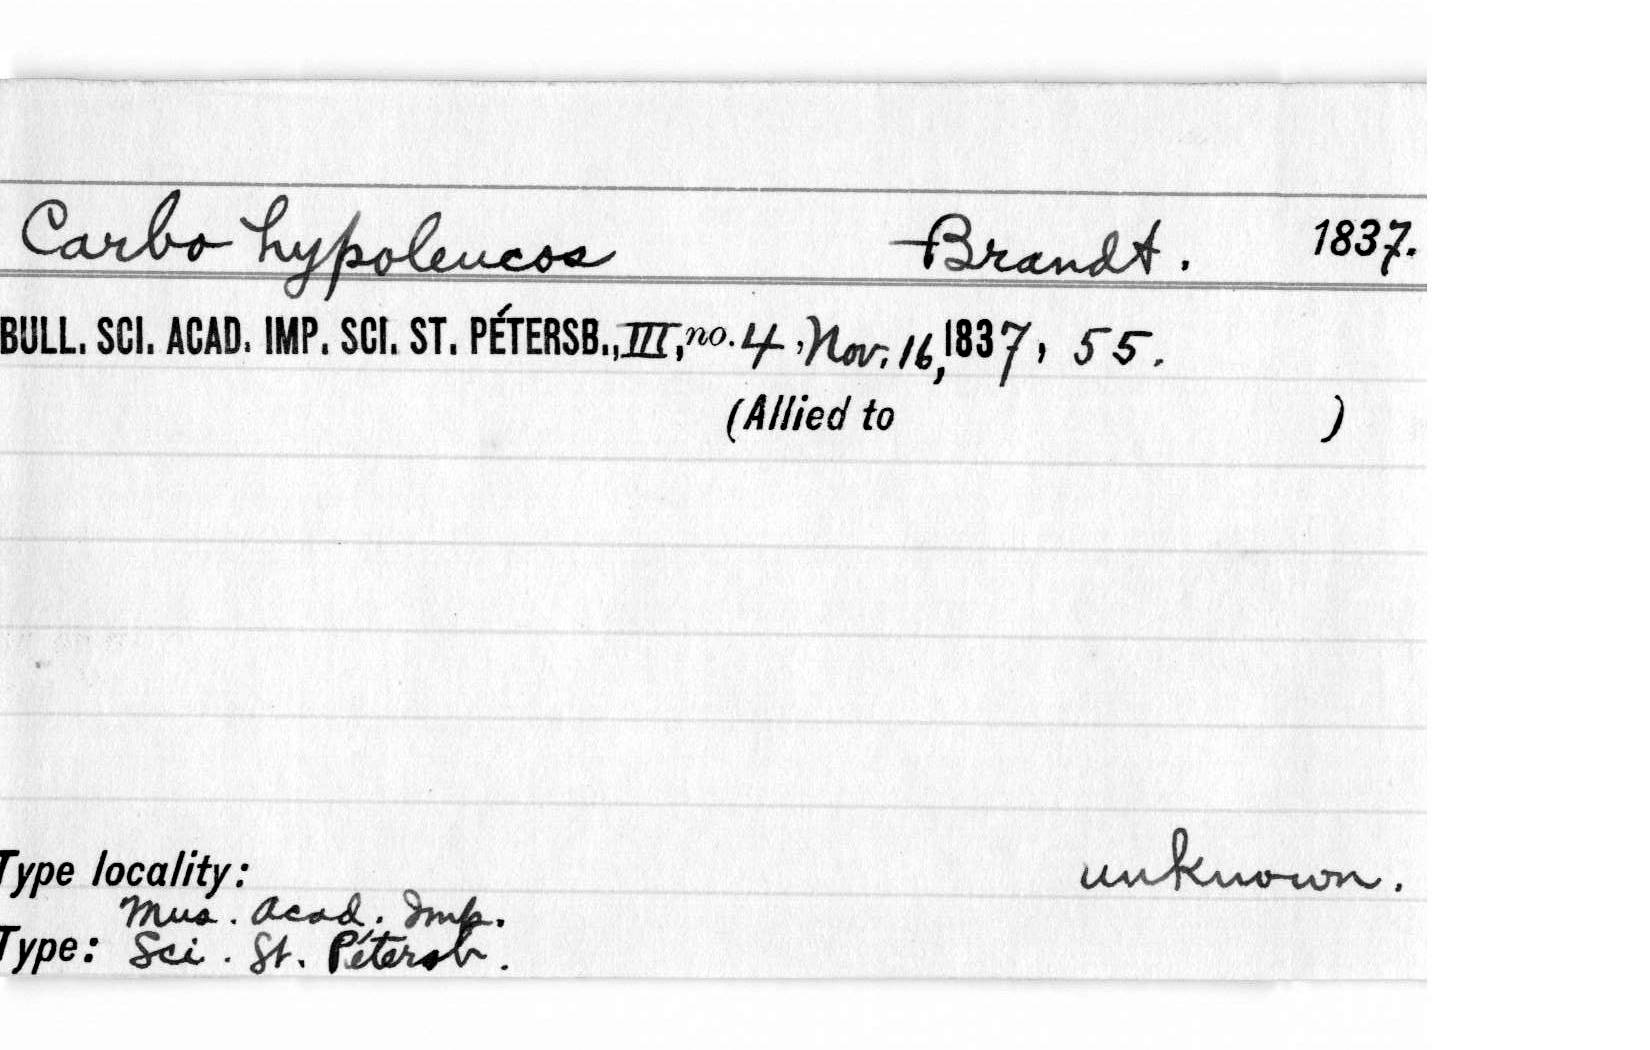 Carbo hypoleucos Brandt. 1837.
BULL. SCI. ACAD. IMP. SCI. ST. PÉTERSB., III, no. 4, Nov. 16, 1837, 55.
(Allied to )
Type locality: unknown.
Mus. Acad. Imp.
Type: Sci. St. Pétersb.